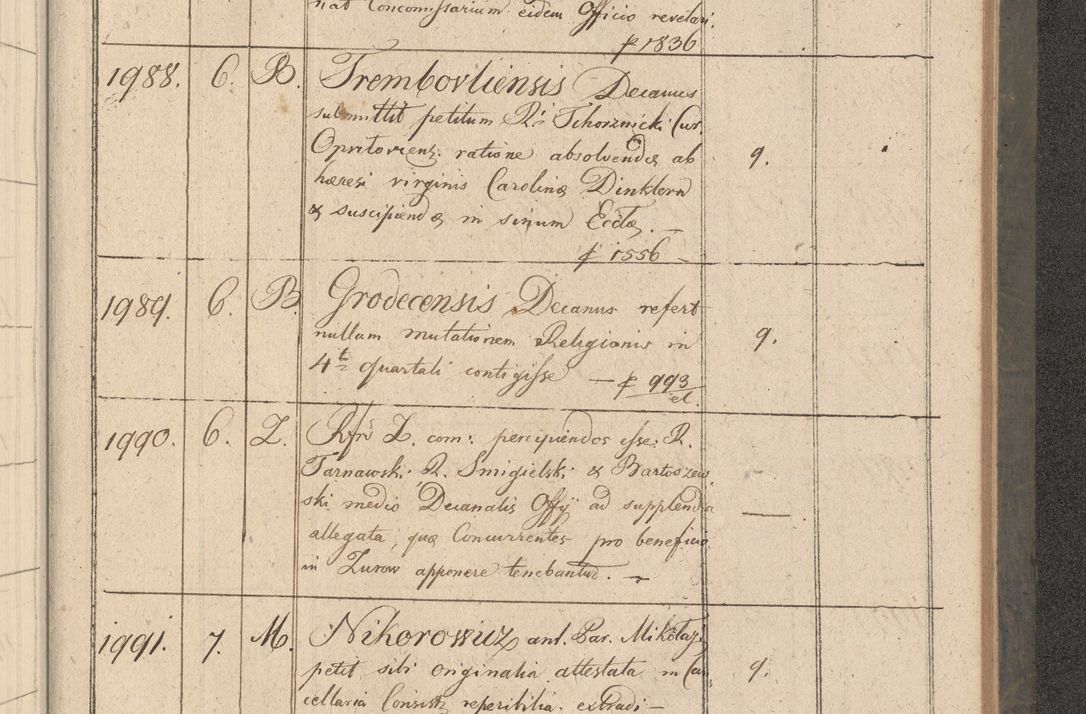 nat Concommissarium eidem Officio revelari.
p 1836
1988. 6. B. Trembovliensis Decanus
submittit petitum R. Tchorznicki Cur.
ratione absolvendæ ab 9.
hæresi virginis Carolinæ Dinklern
& suscipiendæ in sinum Eccłæ. —
p 1556 —
1989. 6. B. Grodecensis Decanus refert
nullam mutationem Religionis in 9.
4t quartali contigisse — p 993
el.
1990. 6. Z. L. com: percipiendos esse: R.
Tarnawski, R. Smigielski & Bartoszew
ski medio Decanalis Offÿ ad supplenda —
allegata, quæ Concurrentes pro beneficio
in Zurow apponere tenebantur. —
1991. 7. M. Nikorowicz ant. Par. Mikołaj.
petit sibi originalia attestata in Can 9.
cellaria Consist. reperibilia extradi —